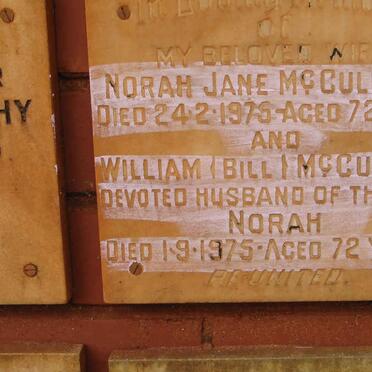 In Loving
of
MY BELOVED WIFE
NORAH JANE McCUL
DIED 24·2·1975·AGED 72
AND
WILLIAM (BILL) McCU
DEVOTED HUSBAND OF TH
NORAH
DIED 1·9·1975·AGED 72 Y
RE-UNITED
R
HY